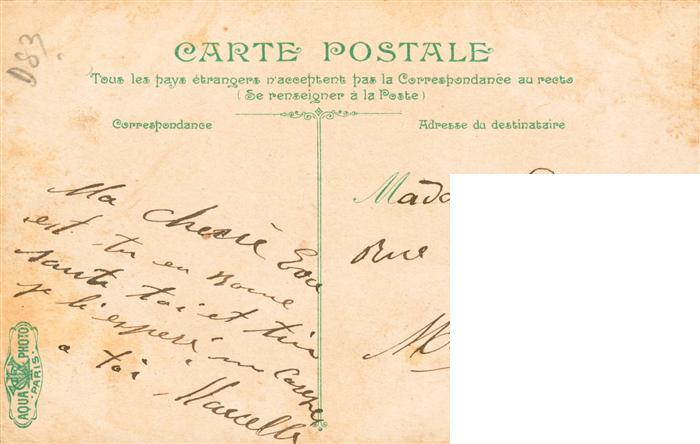 D83
CARTE POSTALE
Tous les pays étrangers n'acceptent pas la Correspondance au recto
(Se renseigner à la Poste)
Correspondance
Adresse du destinataire
Ma cherè
est tu en Bonne
santè toi et
je li esperè un
a toi Marcelle
Rue
AQUA PHOTO
PARIS